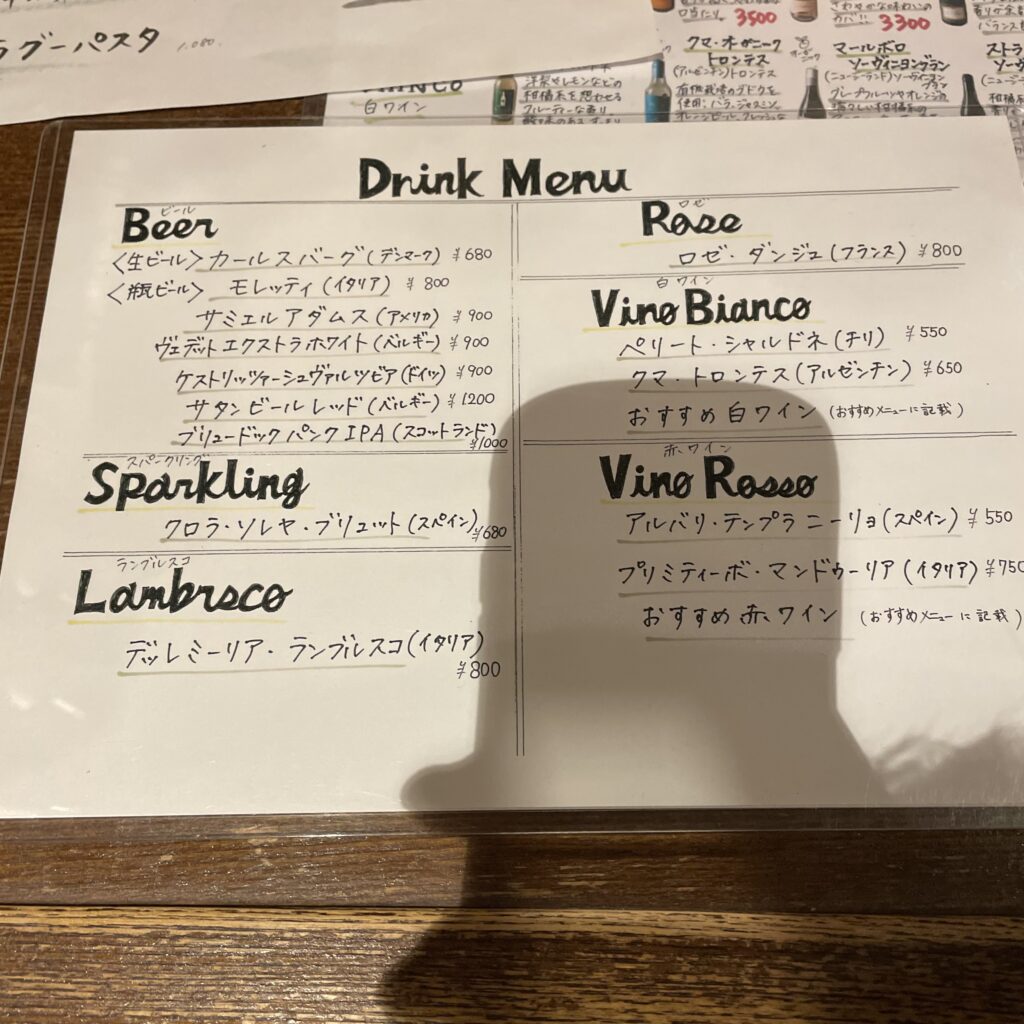 ラグーパスタ 1,080.
白ワイン
洋梨やレモンなどの
柑橘系を想わせる
フルーティな香り。
口当たり。 3500
クマ・オーガニーク
トロンテス
(アルゼンチン)トロンテス
有機栽培のブドウを
使用。バラ、ジャスミン、
さわやかな味わいの
カバ!! 3300
マールボロ
ソーヴィニヨンブラン
Drink Menu
ビール
Beer
〈生ビール〉カールスバーグ(デンマーク) ¥680
〈瓶ビール〉 モレッティ(イタリア) ¥800
サミエルアダムス(アメリカ) ¥900
ヴェデットエクストラホワイト(ベルギー) ¥900
ケストリッツァーシュヴァルツビア(ドイツ) ¥900
サタンビールレッド(ベルギー) ¥1200
ブリュードックパンクIPA(スコットランド) ¥1000
スパークリング
Sparkling
クロラ・ソレヤ・ブリュット(スペイン) ¥680
ランブルスコ
Lambrsco
デッレミーリア・ランブルスコ(イタリア)
¥800
ロゼ
Rose
ロゼ・ダンジュ(フランス) ¥800
白ワイン
Vino Bianco
ペリート・シャルドネ(チリ) ¥550
クマ・トロンテス(アルゼンチン) ¥650
おすすめ白ワイン (おすすめメニューに記載)
赤ワイン
Vino Rosso
アルバリ・テンプラニーリョ(スペイン) ¥550
プリミティーボ・マンドゥーリア(イタリア) ¥750
おすすめ赤ワイン (おすすめメニューに記載)